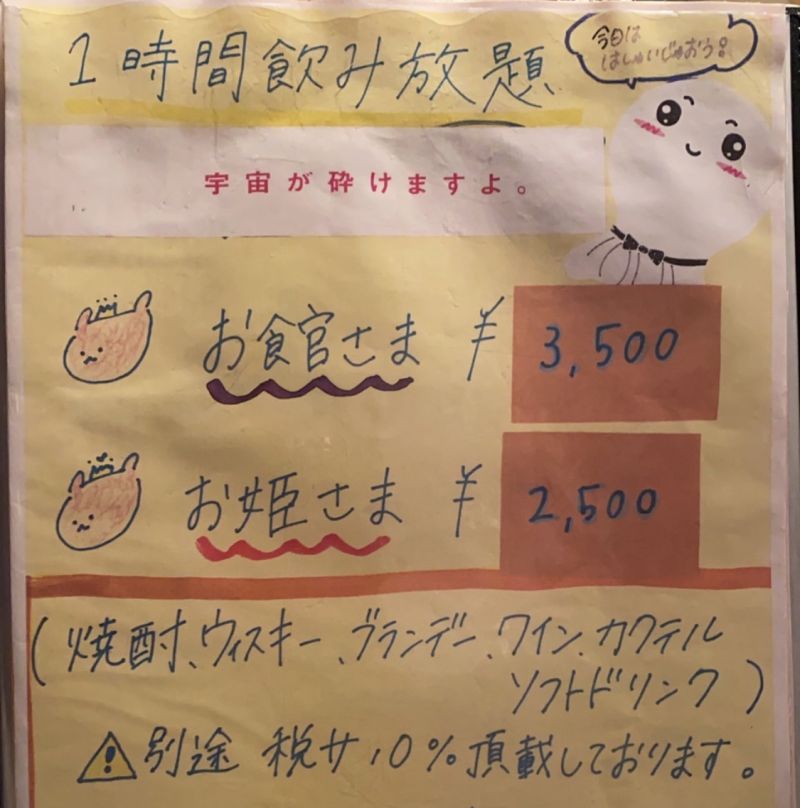 1時間飲み放題
今日は
はしゅいじゅおう!
宇宙が砕けますよ。
お食官さま ¥ 3,500
お姫さま ¥ 2,500
(焼酎、ウィスキー、ブランデー、ワイン、カクテル
ソフトドリンク)
⚠別途 税サ10%頂載しております。